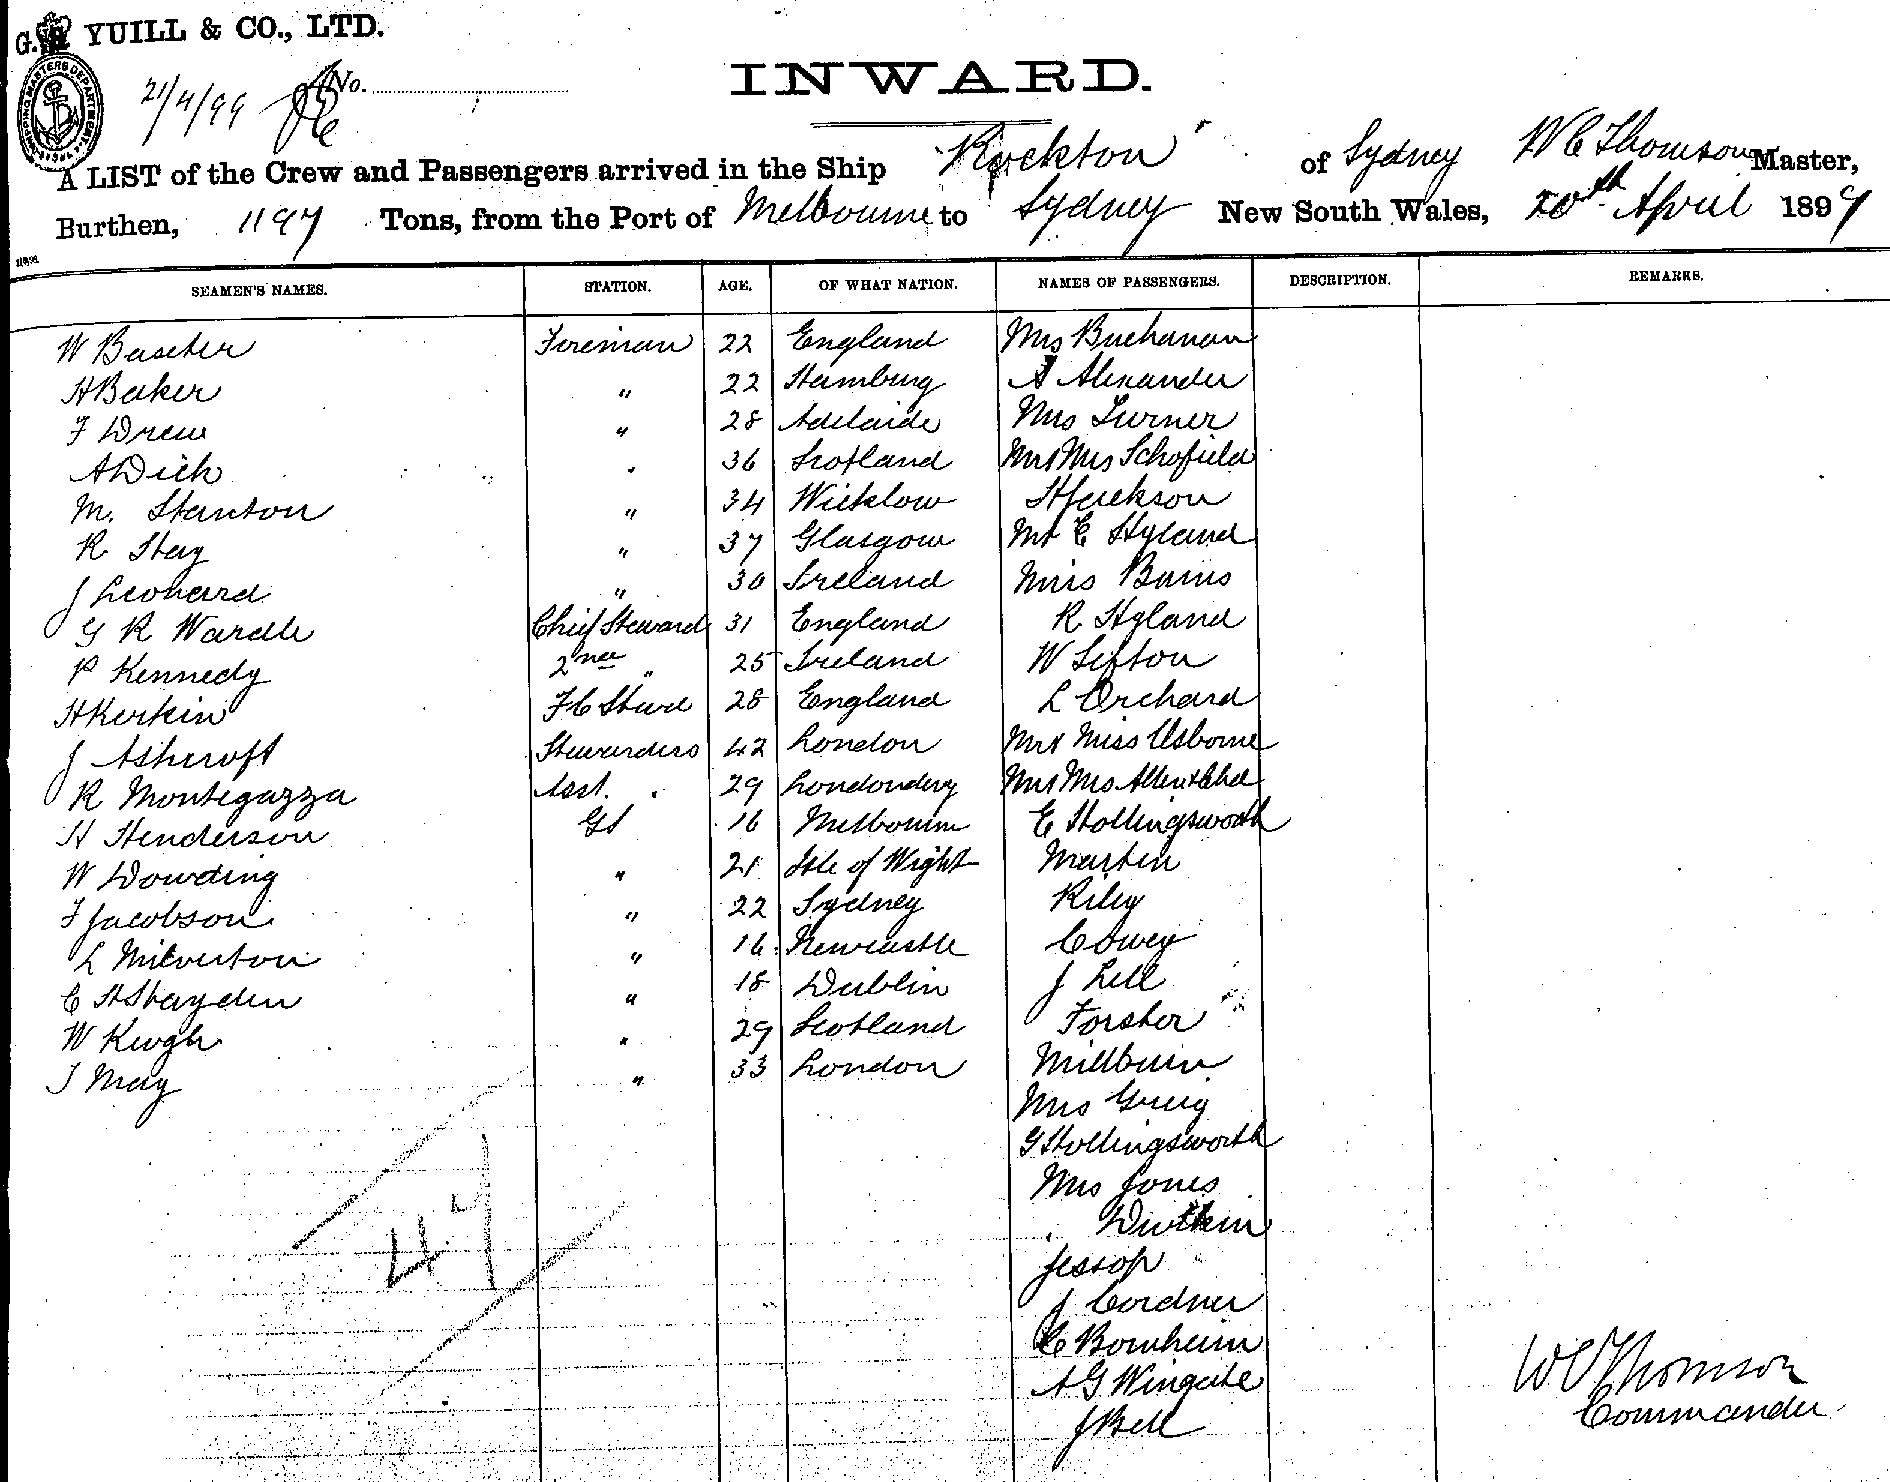 G. YUILL & CO., LTD.
SHIPPING MASTERS DEPARTMENT
21/4/99
No.
INWARD.
A LIST of the Crew and Passengers arrived in the Ship "Rockton" of Sydney W C Thomson Master,
Burthen, 1197 Tons, from the Port of Melbourne to Sydney New South Wales, 20th April 1899
SEAMEN'S NAMES. STATION. AGE. OF WHAT NATION. NAMES OF PASSENGERS. DESCRIPTION. REMARKS.
W Baxter Fireman 22 England Mrs Buchanan
H Baker " 22 Hamburg A Alexander
F Drew " 28 Adelaide Mrs Turner
A Dick " 36 Scotland Mr & Mrs Schofield
M. Stanton " 34 Wicklow H Jackson
R Hay " 37 Glasgow Mr E Hyland
J Leonard " 30 Ireland Miss Bains
G R Wardle Chief Steward 31 England R Hyland
P Kennedy 2nd " 25 Ireland W Sifton
H Kerkin F C Stwd 28 England L Orchard
J Ashcroft Stewardess 42 London Mr & Miss Usborne
R Montegazza Asst. " 29 Londonderry Mr & Mrs Allen & Child
H Henderson GS 16 Melbourne E Hollingsworth
W Dowding " 21 Isle of Wight Martin
F Jacobson " 22 Sydney Riley
L Milverton " 16 Newcastle Cowey
C H Hayden " 18 Dublin J Lill
W Keogh " 29 Scotland Forster
J May " 33 London Millburn
Mrs Greig
G Hollingsworth
Mrs Jones
"
Jessop
J Cordner
47
C Bornheim
A G Wingate
W C Thomson
Commander
J Bell